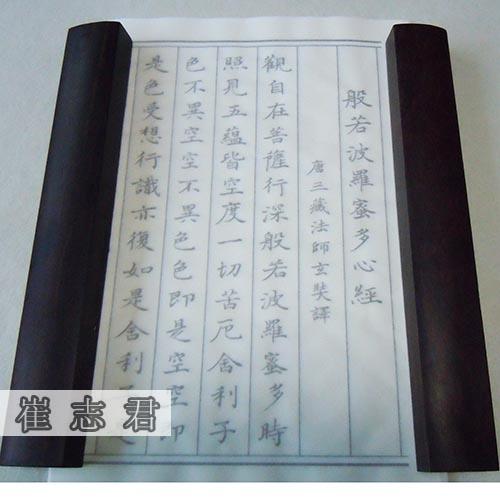 般若波羅蜜多心經
唐三藏法師玄奘譯
觀自在菩薩行深般若波羅蜜多時
照見五蘊皆空度一切苦厄舍利子
色不異空空不異色色即是空空即
是色受想行識亦復如是舍利子
崔志君